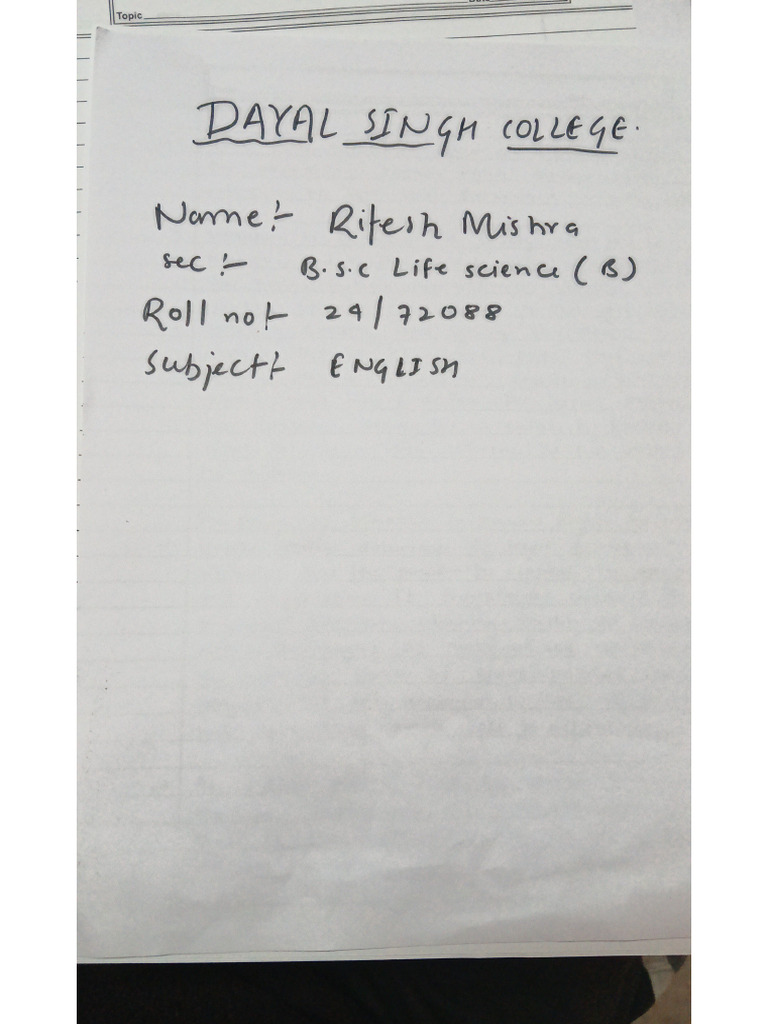 Topic
DAYAL SINGH COLLEGE.
Name:- Ritesh Mishra
sec :- B.s.c Life science (B)
Roll no:- 24/72088
Subject:- ENGLISH